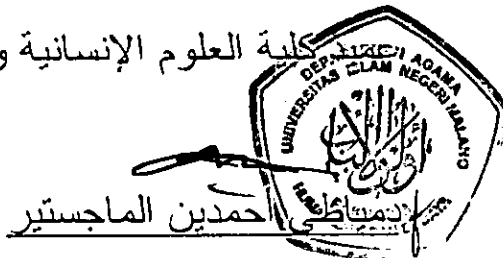 عميد كلية العلوم الإنسانية و
DEPARTEMEN AGAMA
UNIVERSITAS ISLAM NEGERI MALANG
دمياطي احمدين الماجستير